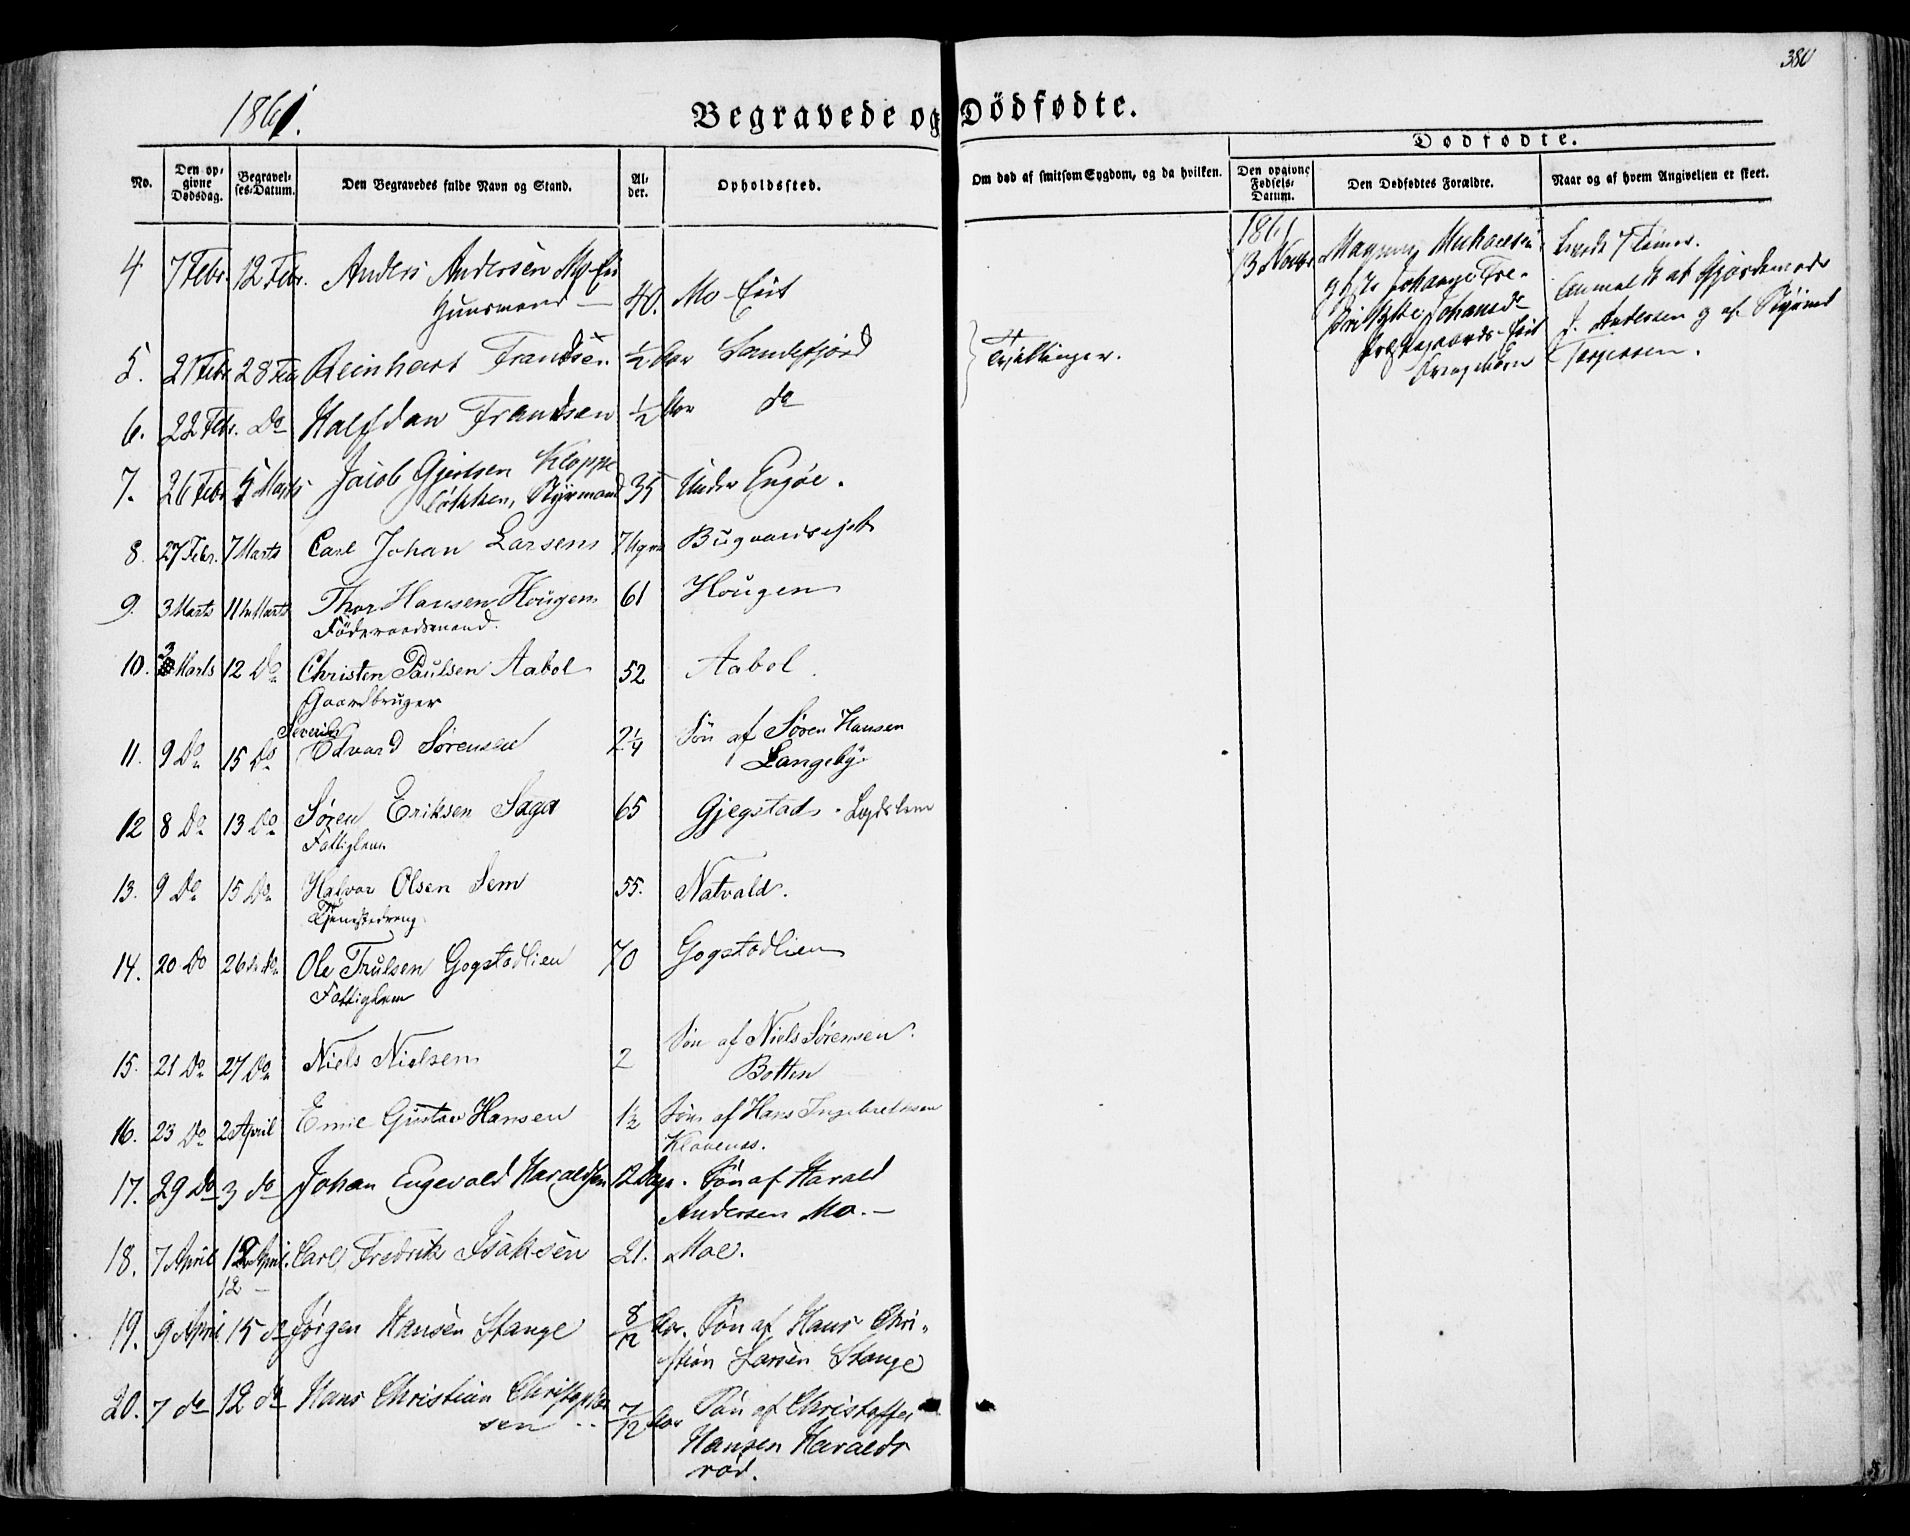 380
1861.
Begravede og Dödfödte.
Dødfødte.
No.
Den opgivne Dødsdag.
Begravelses-Datum.
Den Begravedes fulde Navn og Stand.
Alder.
Opholdssted.
Om død af smitsom Sygdom, og da hvilken.
Den opgivne Fødsels-Datum.
Den Dødfødtes Forældre.
Naar og af hvem Angivelsen er skeet.
4 7 Febr. 12 Febr. Anders Andersen Mo-Eie
Huusmand 40. Mo-Eiet
5. 21 Febr 28 Feb Reinhart Frandsen ½ Aar Sandefjord
Tvillinger.
6. 22 Febr. Do Halfdan Frandsen ½ Aar do
7. 26 Febr 5 Marts Jacob Gjertsen Kloppe
Løkken, Styrmand 35 Under Engøe.
8. 27 Febr. 7 Marts Carl Johan Larsen 7 Uger Bugaardsejet
9. 3 Marts 11 Marts Thor Hansen Hougen 61 Hougen
Föderaadsmand.
10. 3 Marts 12 Do Christen Paulsen Aabol 52 Aabol
Gaardbruger
11. 9 Do 15 Do Severin
Edvard Sørensen 2¼ Sön af Søren Hansen
Langeby
12 8 Do 13 Do Søren Eriksen Saga 65 Gjegstad - Lægdslem
Fattiglem
13. 9 Do 15 Do Halvor Olsen Sem 55. Natvald.
Tjenestedreng
14. 20 Do 26 Do Ole Trulsen Gogstadlien 70 Gogstadlien
Fattiglem
15. 21 Do 27 Do Niels Nielsen 2 Sön af Niels Sørensen
Botten
16. 23 Do 2 April Emil Gustav Hansen 1½ Sön af Hans Ingebretsen
Klavenes.
17. 29 Do 3 do Johan Engevald Haraldsen 12 Dage. Sön af Harald
Andersen Mo.
18. 7 April 12 April. Carl Fredrik Isaksen 21. Moe.
12
19. 9 April 15 do Jørgen Hansen Stange 8/12 Aar. Sön af Hans Chri-
stian Larsen Stange
20. 7 do 12 do Hans Christian Christopher
sen 7/12 Aar Sön af Christoffer
Hansen Haralds
rød.
1861
13 Novbr Magnus Michaelsen
Johanne
Johansd
Eiet
Levede 7 Timer.
Anmeldt af Gjordemoder
J. Andersen og af Styrmd
Torgersen.